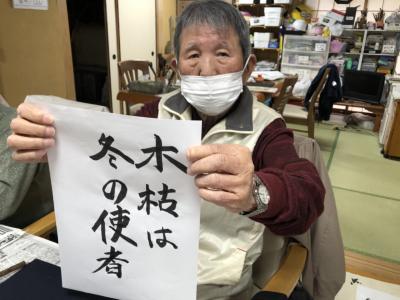 木枯は
冬の使者